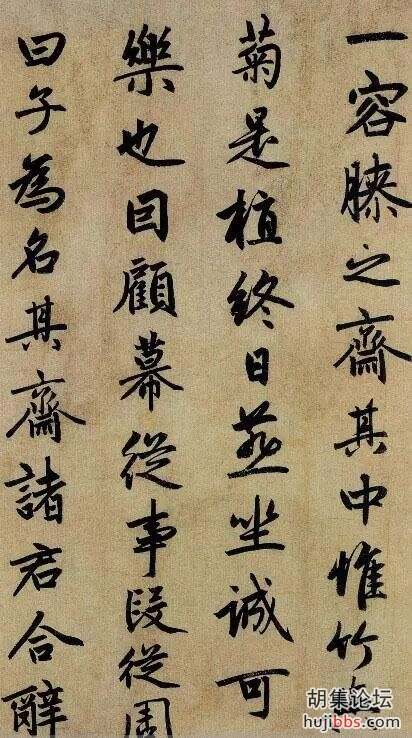 一容膝之齋其中惟竹
菊是植終日燕坐誠可
樂也回顧幕從事段從周
曰子為名其齋諸君合辭
胡集论坛
hujibbs.com